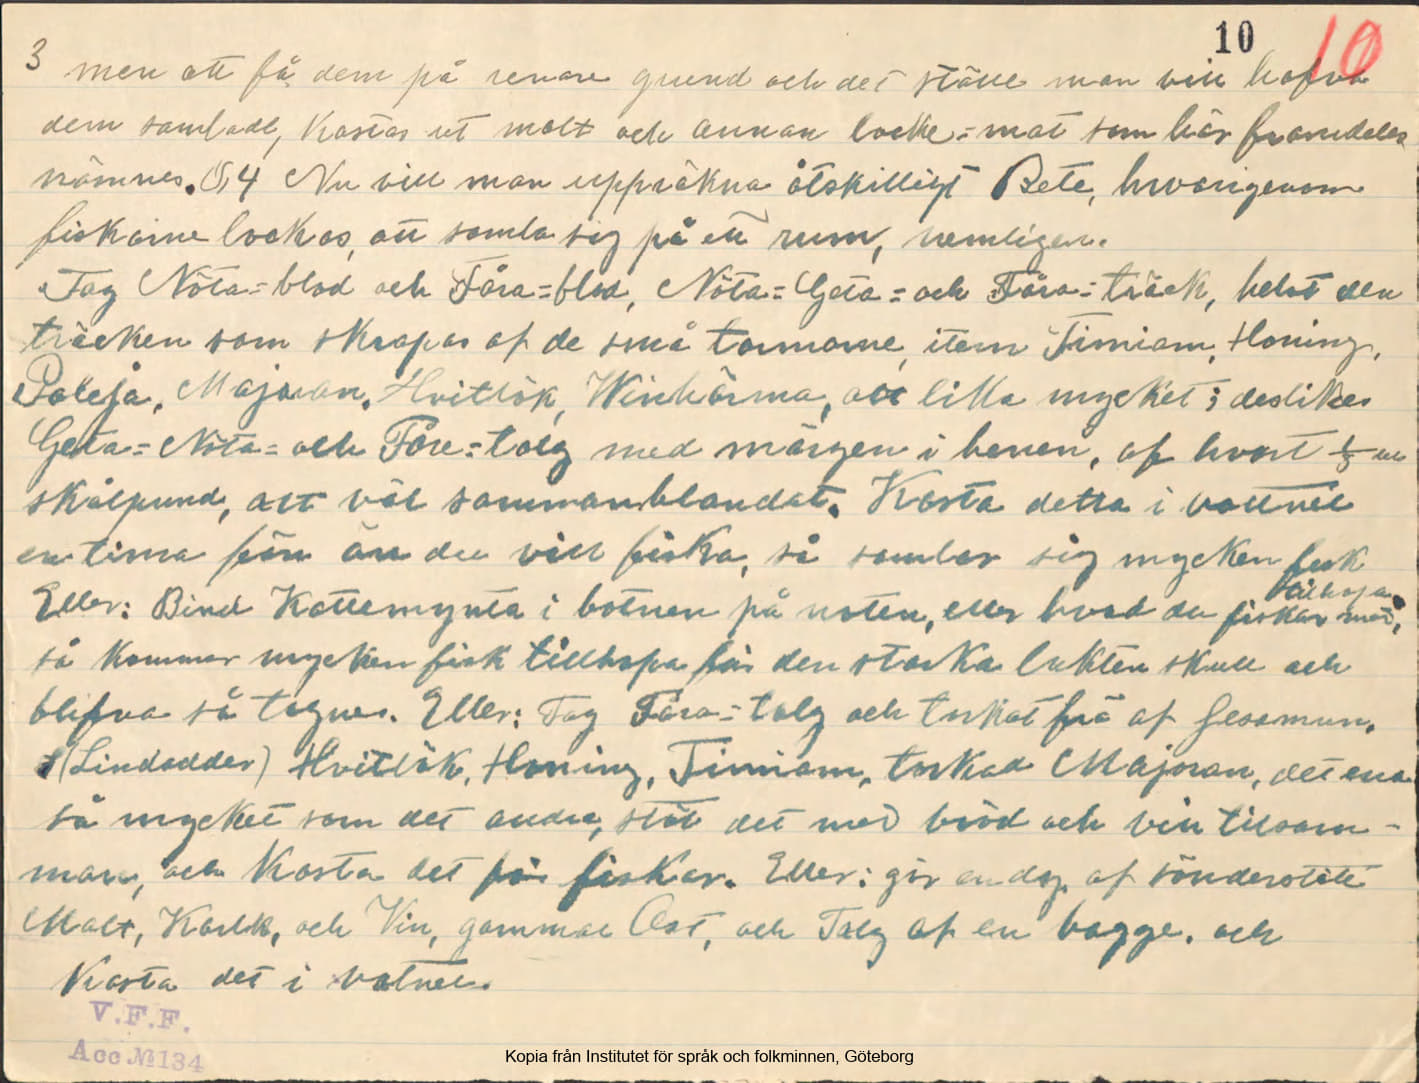 10 10
3 men att få dem på renare grund och det ställe man vill hafva
dem samlade, kastas ut malt och annan locke=mat som här framdeles
nämnes. § 4 Nu vill man uppräkna åtskilligt Bete, hvarigenom
fiskarne lockas, att samla sig på ett rum, nemligen.
Tag Nöta=blod och Fåra=blod, Nöta=Geta=och Fåra=träck, helst den
träcken som skrapas af de små tarmarne, item Timiam, Honing,
Poleja, Majoran, Hvitlök, Winbärma, allt lika mycket; deslikes
Geta=Nöta=och Fåre=talg med märgen i benen, af hvart
skålpund, allt väl sammanblandat. Kasta detta i vattnet
en tima förr än du vill fiska, så samlar sig mycken fisk
tillhopa.
Eller: Bind Kattemynta i botnen på noten, eller hvad du fiskar med,
så kommer mycken fisk tillhopa för den starka lukten skull och
blifva så tagne. Eller: Tag Fåra=talg och torkat frö af
(Lindodder) Hvitlök, Honing, Timiam, torkad Majoran, det ena
så mycket som det andra, stöt det med bröd och vin tilsam-
man, och Kasta det för fiskar. Eller: gör en deg af sönderstött
Malt, och Vin, gammal Ost, och Talg af en bagge. och
Kasta det i vatnet.
V.F.F.
Acc.№134
Kopia från Institutet för språk och folkminnen, Göteborg